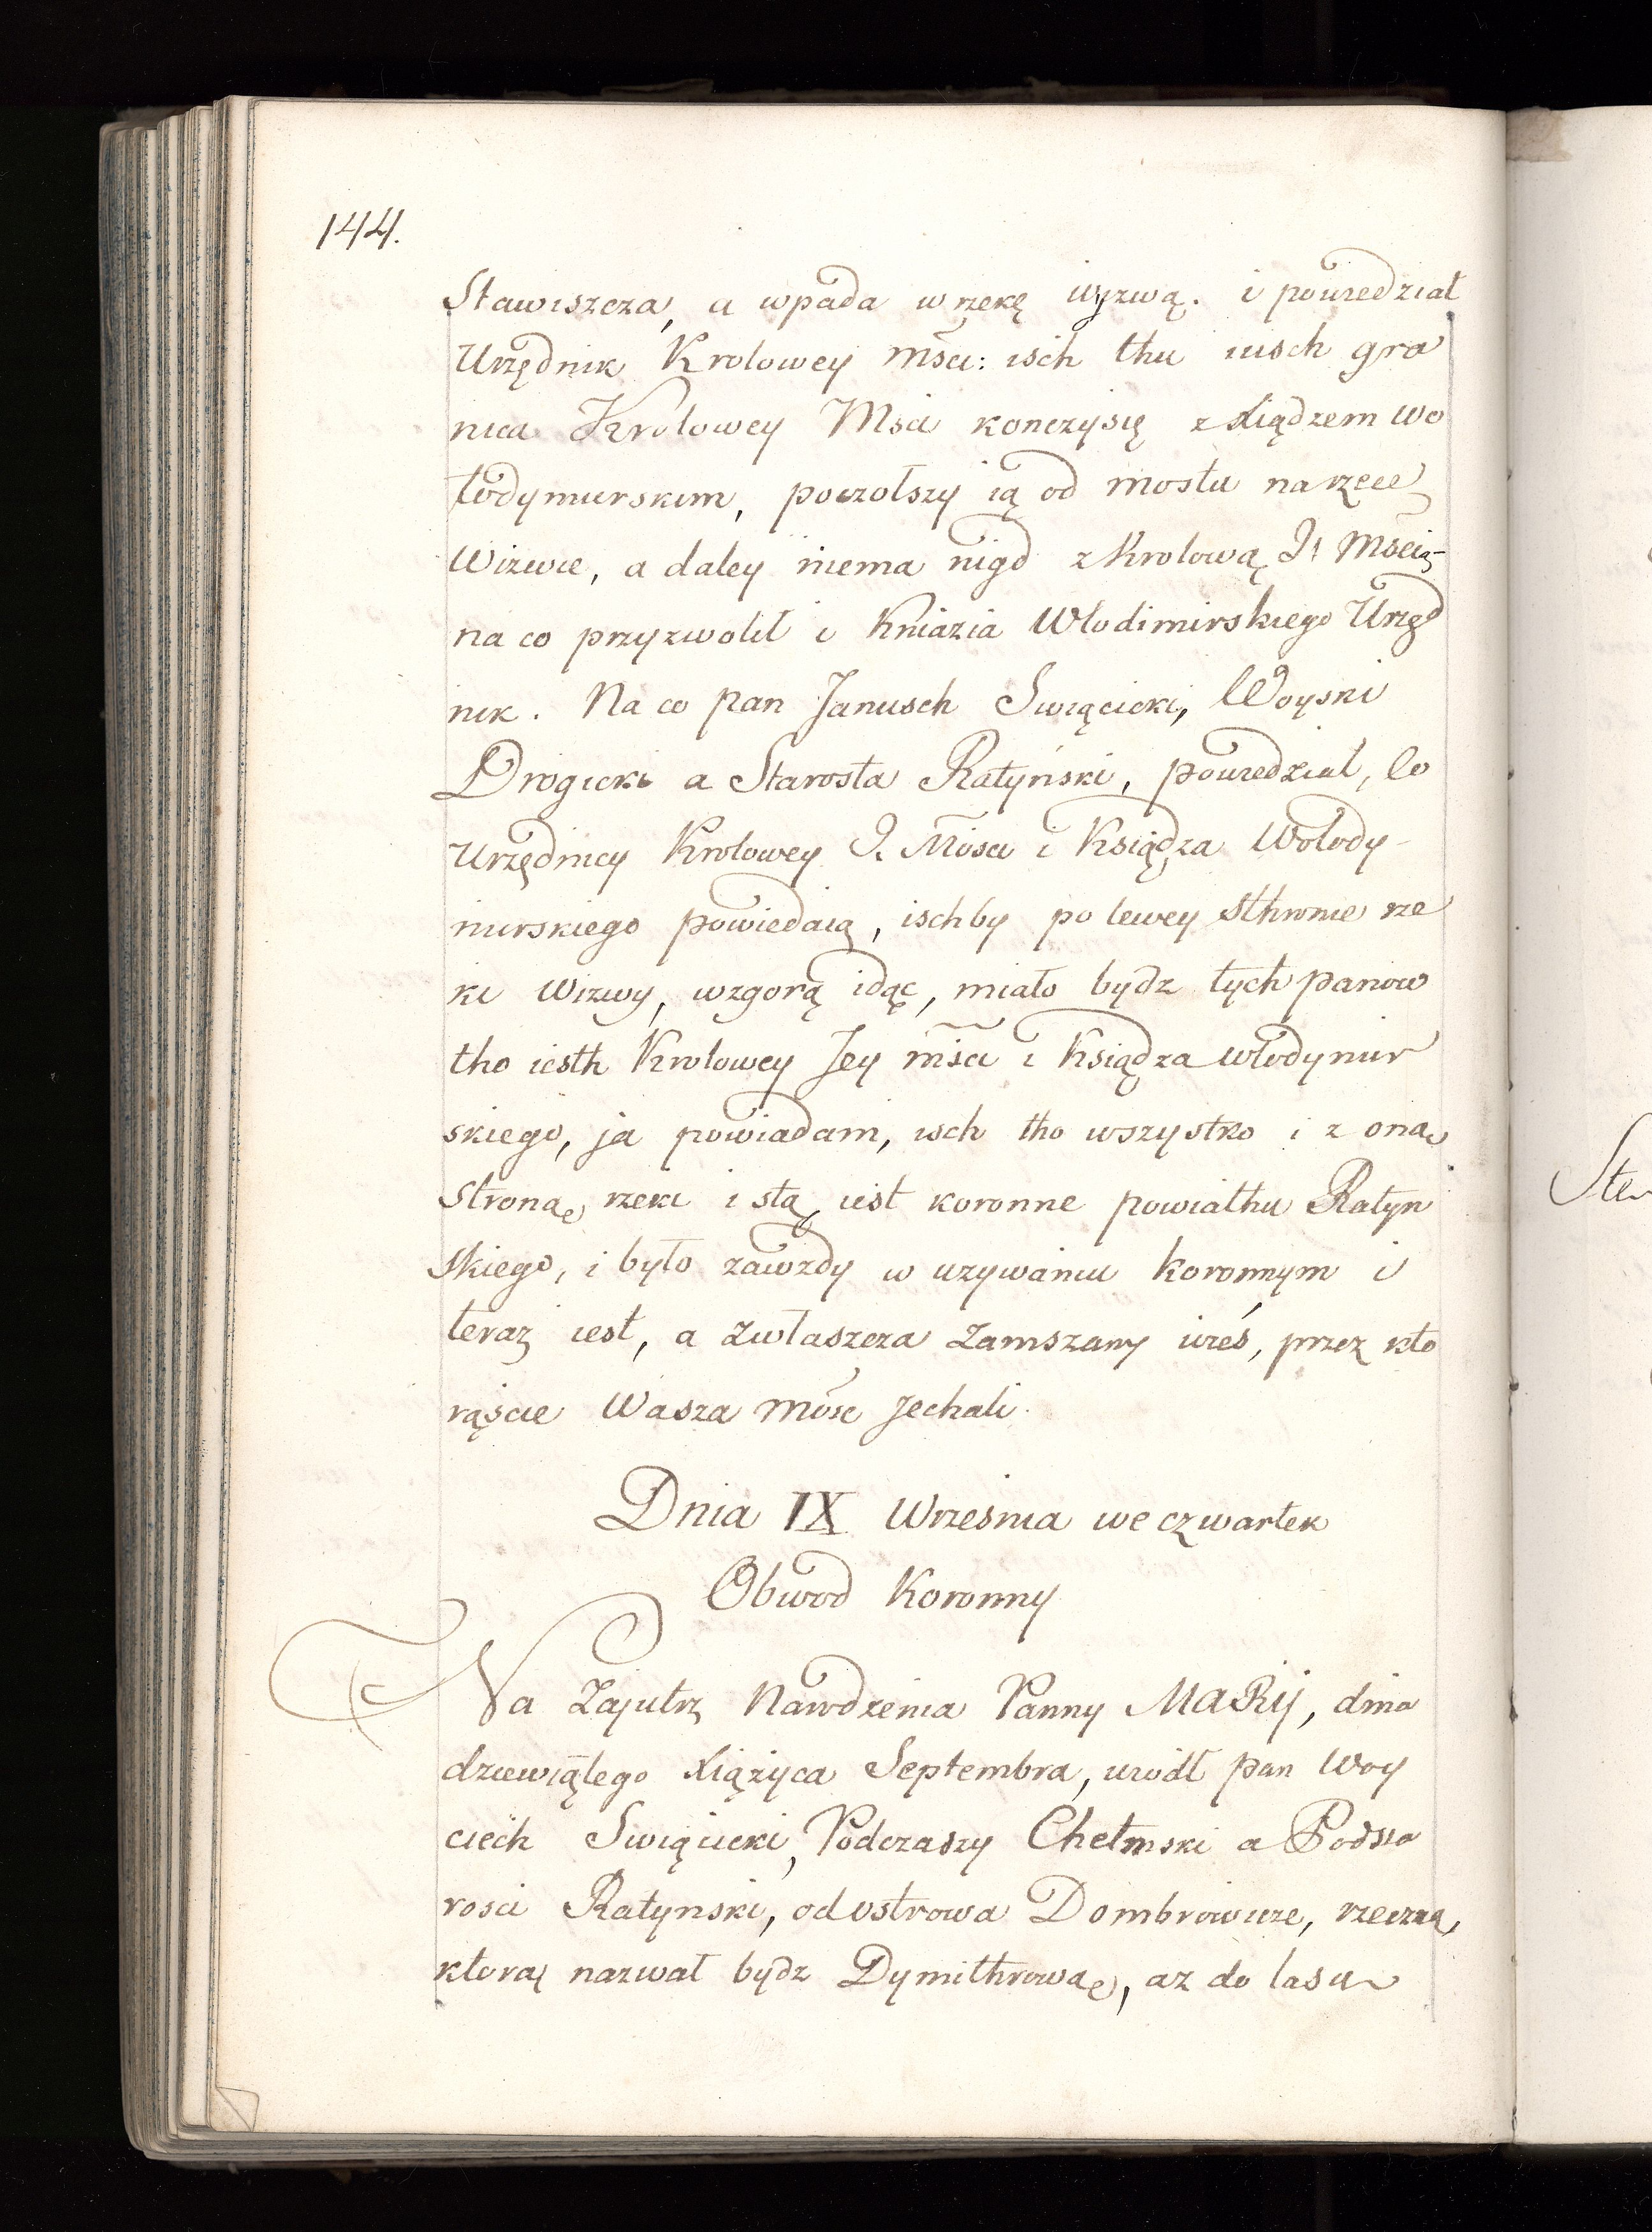 144.
Stawiszcza, a wpada w rzekę wyzwą. i powiedział
Urzędnik Krolowey Mści: isch thu iusch gra
nica Krolowey Msci konczysię z Xiądzem Wo
łodymirskim, poczołszy ią od mostu na rzece
Wizwie, a daley niema nigd z Krolową J. Mścią
na co przyzwolil i Kniazia Włodimirskiego Urzęd
nik. Na co pan Janusch Swięcicki, Woyski
Drogicki a Starosta Ratyński, powiedział, Co
Urzędnicy Krolowey J. Mości i Księdza Wołody-
mirskiego powiedaią, ischby po lewey sthronie rze
ki Wizwy, wzgorą idąc, miało bydz tych panow
tho iesth Krolowey Jey mści i Księdza włodymir
skiego, ja powiadam, isch tho wszystko i z oną
stroną rzeki i stą iest koronne powiathu Ratyn
skiego, i było zawżdy w uzywaniu koronnym i
teraz iest, a zwłaszcza Zamszany wieś, przez kto
rąście Wasza Mość Jechali.
Dnia IX Wrzesnia we czwartek
Obwod Koronny
Na Zajutrz Narodzenia Panny MARIJ, dnia
dziewiątego Xiężyca Septembra, wiodł pan Woy
ciech Swięcicki, Podczaszy Chełmski a Podsta
rosci Ratynski, od ostrowa Dombrowicze, rzeczką,
ktorą nazwał bydz Dymithrową, az do lasu
Ste